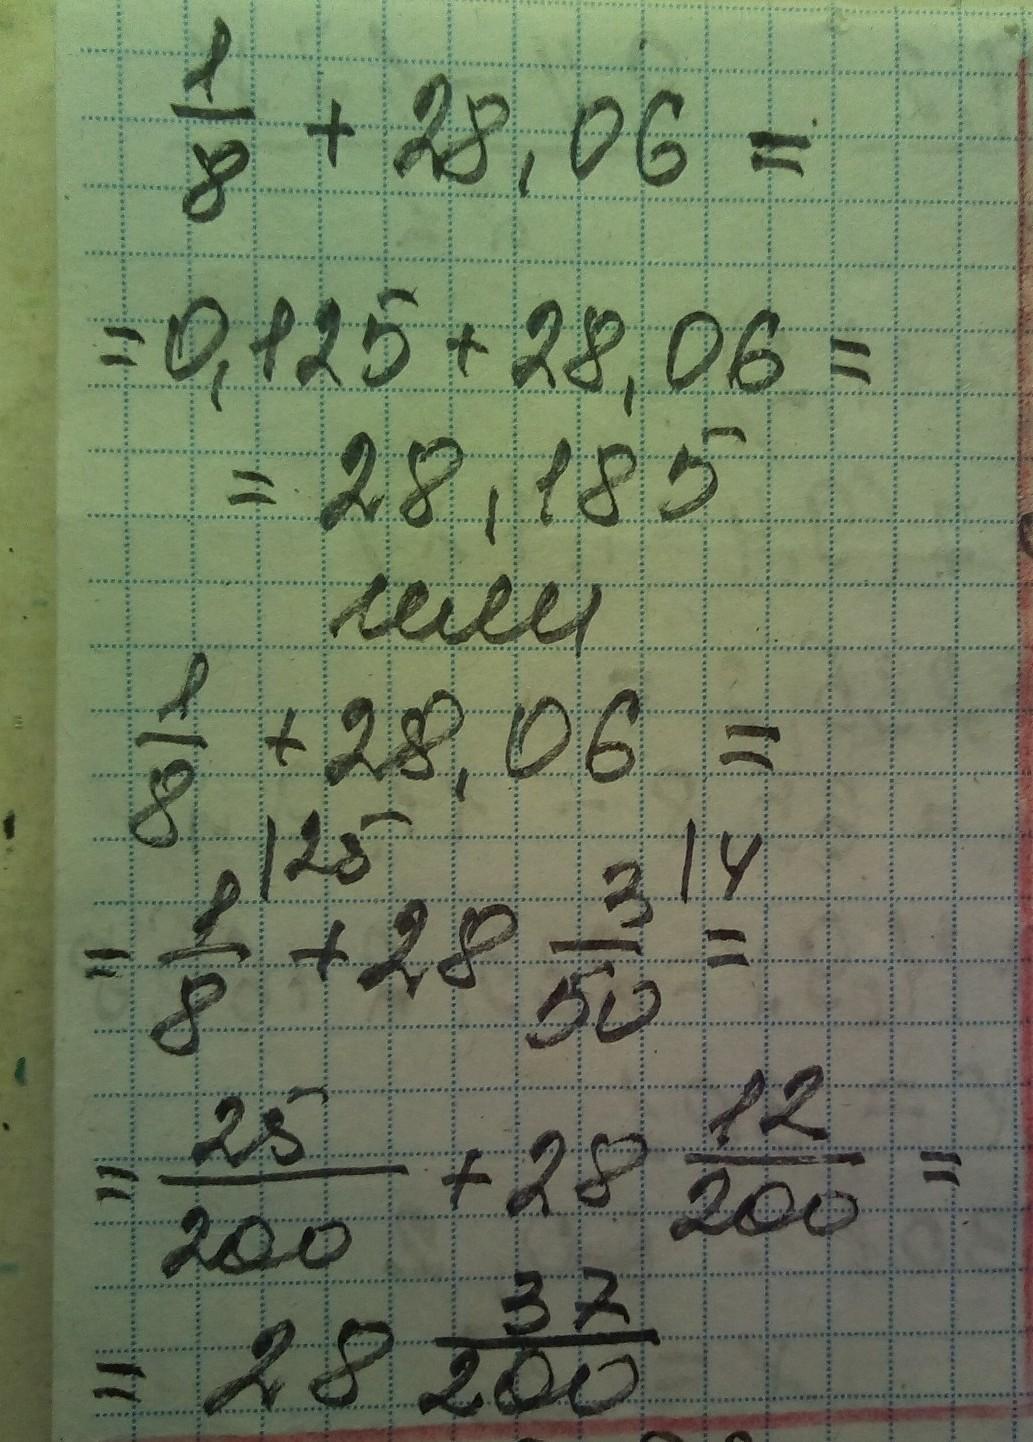 1/8 + 28,06 =
= 0,125 + 28,06 =
= 28,185
или
1/8 + 28,06 =
= 1/8 |25 + 28 3/50 |4 =
= 25/200 + 28 12/200 =
= 28 37/200